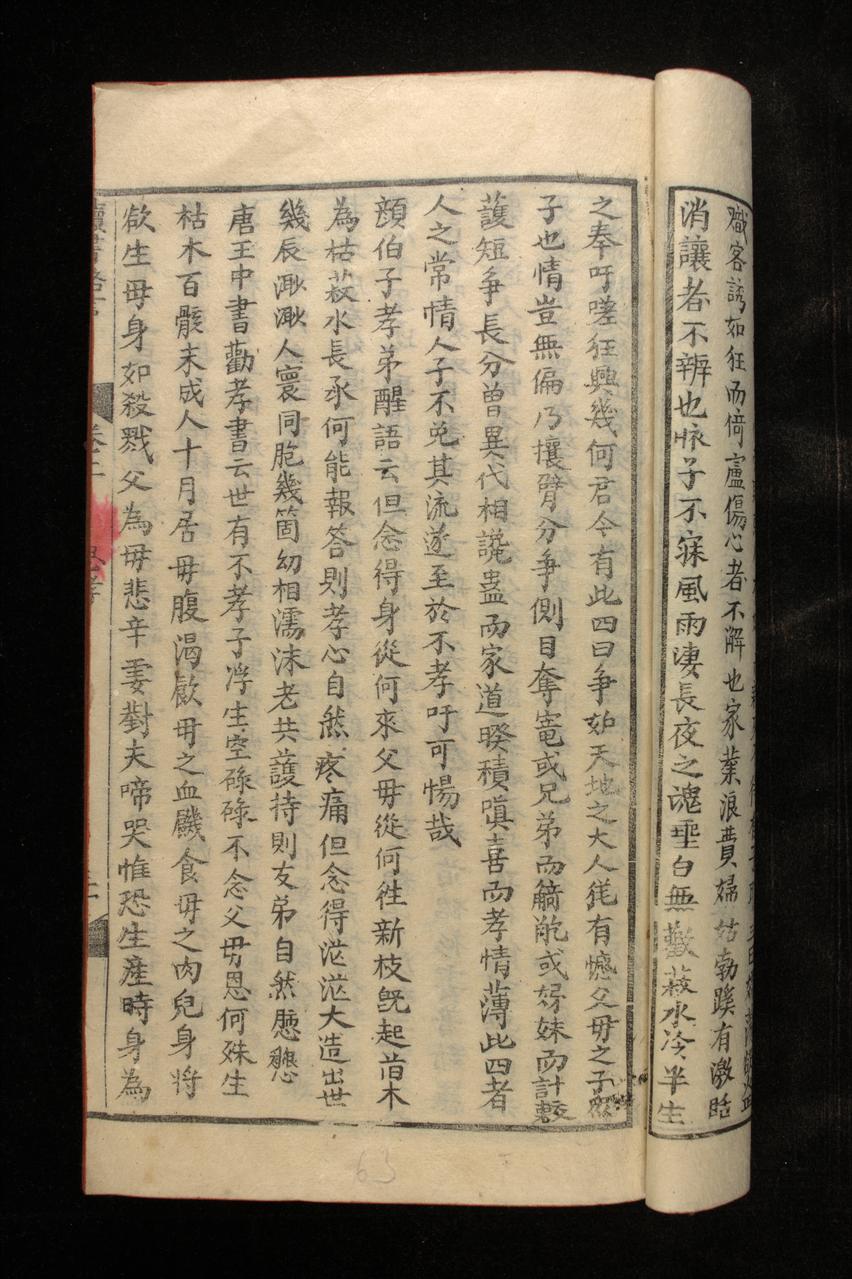 職客誘如狂而倚廬傷心者不解也家業浪費婦姑勃蹊有激詬
消讓者不辨也怺子不寐風雨淒長夜之魂垩白無歡菽水冷半生
之奉吁嗟狂興幾何君今有此四曰争如天地之大人猶有憾父母之子衆
子也情豈無偏乃攘臂分爭側目奪竈或兄弟而觭𩨷或妯妹而計較
護短爭長分曾異代相讒蠱而家道暌積嗔喜而孝情薄此四者
人之常情人子不免其流遂至於不孝吁可惕哉
顔伯子孝弟醒語云但念得身從何來父母從何徃新枝旣起昔木
為枯菽水長承何能報答則孝心自然疼痛但念得茫茫大造出世
幾辰湫湫人寰同胞幾箇幼相濡沫老共護持則友弟自然慿戀
唐王中書勸孝書云世有不孝子浮生空碌碌不念父母恩何殊生
枯木百骸未成人十月居母腹渴飲母之血饑食母之肉兒身將
欲生母身如殺戮父為母悲辛妻對夫啼哭惟恐生產時身為
卷二